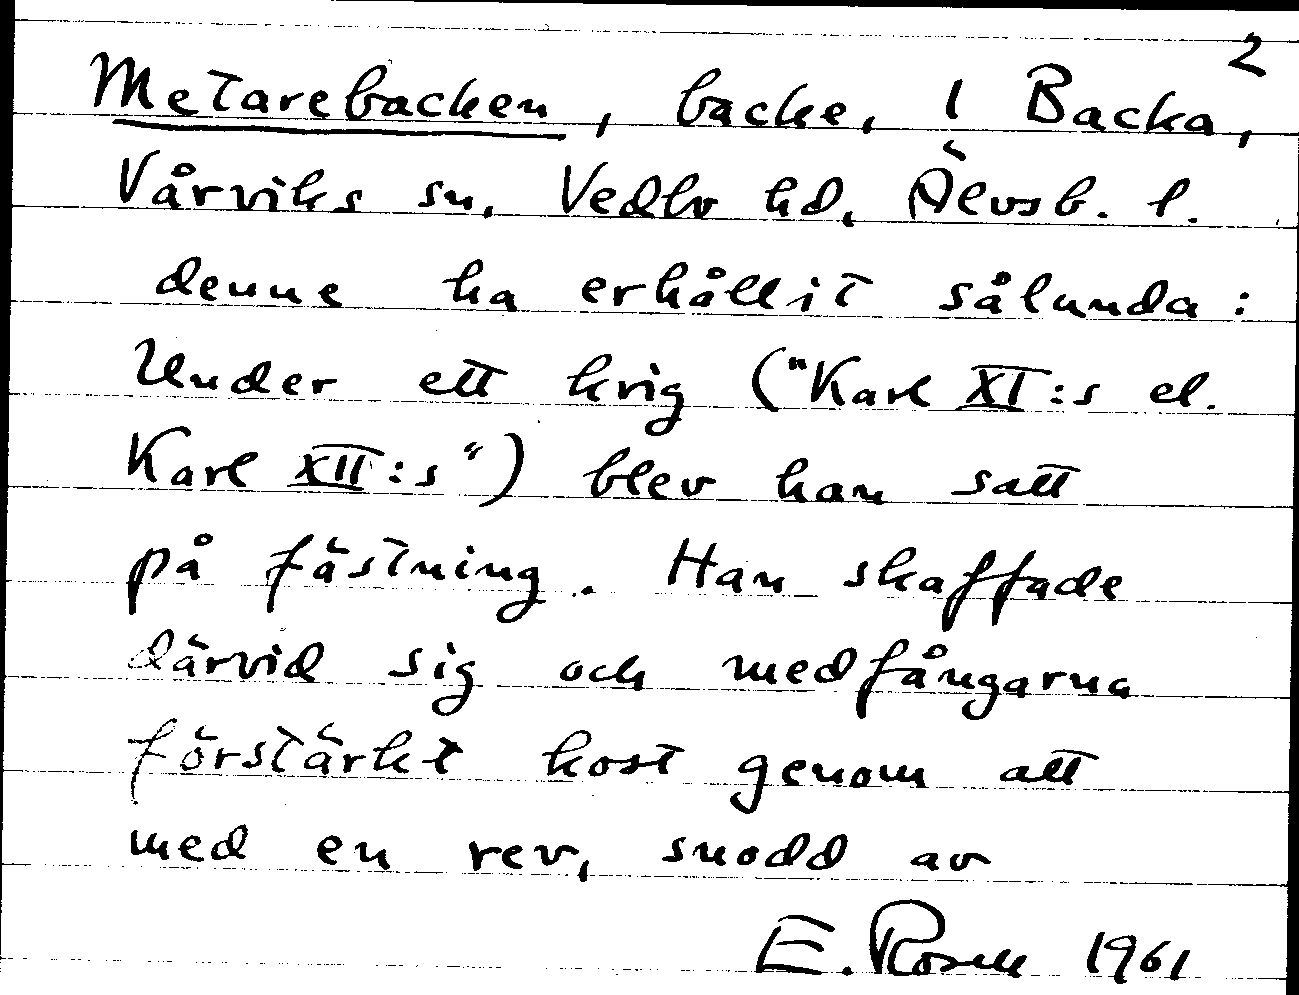 2
Metarebacken, backe, 1 Backa,
Vårviks sn. Vedbo hd, Älvsb. l.
denne ha erhållit sålunda:
Under ett krig ("Karl XI:s el.
Karl XII:s") blev han satt
på fästning. Han skaffade
därvid sig och medfångarna
förstärkt kost genom att
med en rev, snodd av
E. Rosell 1961